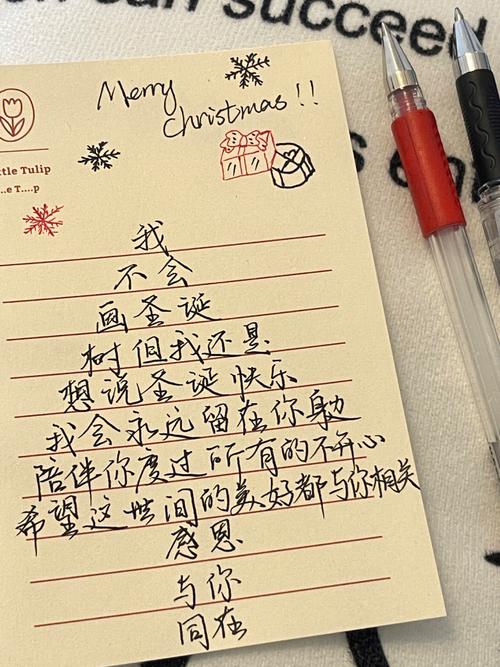 can succeed
Merry
Christmas!!
ttle Tulip
..e T....p
我
不会
画圣诞
树但我还是
想说圣诞快乐
我会永远留在你身边
陪伴你度过所有的不开心
希望这世间的美好都与你相关
感恩
与你
同在